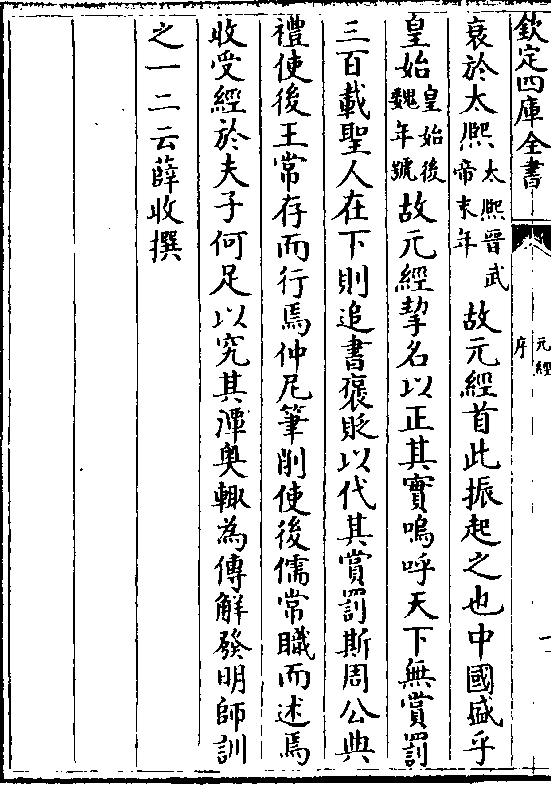 欽定四庫全書
元經
序
衰於太熙太熙晉武帝末年故元經首此振起之也中國盛乎
皇始皇始後魏年號故元經挈名以正其實嗚呼天下無賞罰
三百載聖人在下則追書褒貶以代其賞罰斯周公典
禮使後王常存而行焉仲尼筆削使後儒常職而述焉
收受經於夫子何足以究其潭奧輙為傳解發明師訓
之一二云薛收撰